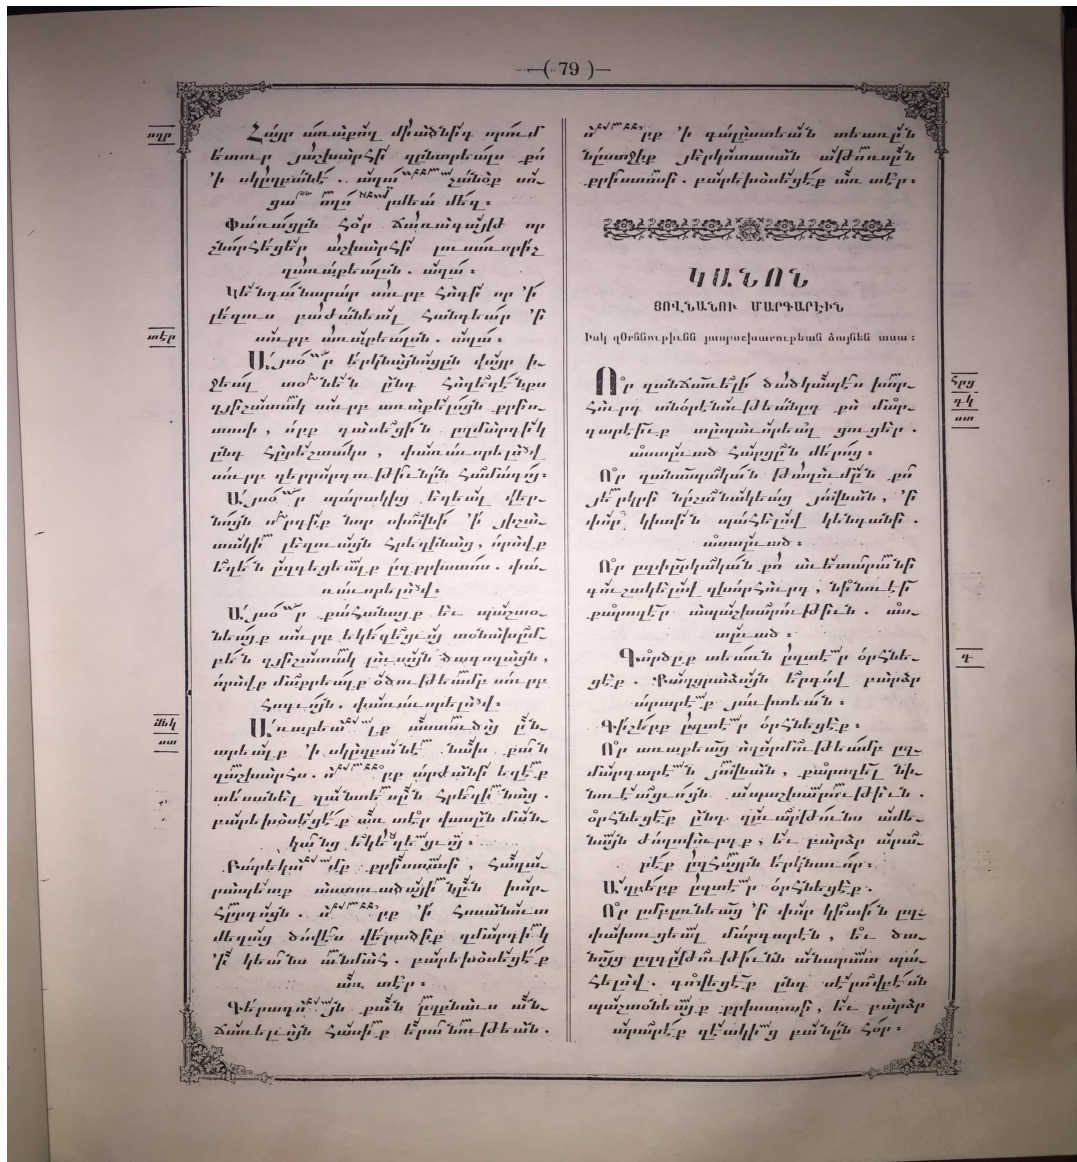 —( 79 )—
ողբ
Հայր առաքող միածնիդ որում
ետուր յաշխարհի զընտրեալս քո
'ի սկըզբանէ . աղա չանօք սո-
ցա ողո րմեա մեզ :
Փառացըն հօր ճառագայթ որ
շնորհեցեր աշխարհի լուսաւորիչ
զառաքեալսն . աղա :
Կենդանարար սուրբ հոգի որ 'ի
լեզուս բաժանեալ հանդեար 'ի
սուրբ առաքեալսն . աղա :
տէր
Այսօր երկնայնոցըն վայր ի-
ջեալ տօնեն ընդ հողեղէնքս
զյիշատակ սուրբ առաքելոյն քրիս-
տոսի , որք դասեցին ըզմարդիկ
ընդ հըրեշտակս , փառաւորելով
սուրբ զերրորդութիւնըն համագոյ :
Այսօր պարակից եղեալ վեր-
նոյն որդիք նոր սիոնի 'ի յիշա-
տակի լեզուայն հրեղինաց , որովք
եղեն ըզգեցեալք ըզքրիստոս . փա-
ռաւորելով :
Այսօր քահանայք եւ պաշտօ-
նեայք սուրբ եկեղեցւոյ տօնախըմ-
բեն զյիշատակ լուսոյն ծագողացն ,
որովք մաքրեալք օծութեամբ սուրբ
հոգւոյն . փառաւորելով :
մեկ
ստ
Առաքեալք աստուծոյ ըն-
տրեալք 'ի սկըզբանէ նախ քան
զաշխարհս . որք արժանի եղէք
տեսանել զանտեսըն հրեղինաց .
բարեխօսեցէք առ տէր վասըն ման-
կանց եկեղեցւոյ :
Բարեկամք քրիստոսի , հաղա-
րապետք աստուածայինըն խոր-
հըրդոյն . որք 'ի հոսանուտ
մեղաց ծովէս վերածիք զմարդիկ
'ի կեանս անմահ . բարեխօսեցէք
առ տէր :
Գերագոյն քան զըղձաւս ան-
ճառելոյն հասիք երանութեան .
որք 'ի գալըստեան տեառըն
նըստջիք յերկոտասան աթոռըն
քրիստոսի . բարեխօսեցէք առ տէր :
ԿԱՆՈՆ
ՅՈՎՆԱՆՈՒ ՄԱՐԳԱՐԷԻՆ
Իսկ զՕրհնութիւնն յապաշխարութեան ձայնեն ասա :
հրց
դկ
ստ
Որ զանճառելի ծածկապէս խոր-
հուրդ անօրէնութեանըդ քո մար-
գարէիւք աըպաւորեալ ցուցեր .
աստուած հարցըն մերոց :
Որ զանապական թաղումըն քո
յերկրի նըշանակեաց յովնան , 'ի
փոր կիտին պահելով կենդանի .
աստուած :
Որ ըզփըրկական քո աւետարանի
գուշակելով զխորհուրդ , նինուէի
քարոզէր ապաշխարութիւն . աս-
տուած :
դ
Գործըք տեառն ըզտէր օրհնե-
ցէք . Քաղցրաձայն երգով բարձր
արարէք յաւիտեան :
Գիշերք ըզտէր օրհնեցէք :
Որ առաքեաց ողորմութեամբ ըզ-
մարգարէն յովնան , քարոզել նի-
նուէացւոյն ապաշխարութիւն .
օրհնեցէք ընդ զուարթունս ամե-
նայն ժողովուրդք , եւ բարձր արա-
րէք ըզհայրն երկնաւոր :
Աղբերք ըզտէր օրհնեցէք .
Որ ըմբըռնեաց 'ի փոր կիտին ըզ-
փախուցեալ մարգարէն , եւ ծա-
նոյց ըզգըթութիւնն անապատ պա-
հելով . գովեցէք ընդ սէրովբէսն
պաշտօնեայք քրիստոսի , եւ բարձր
արարէք զէակից բանըն հօր :